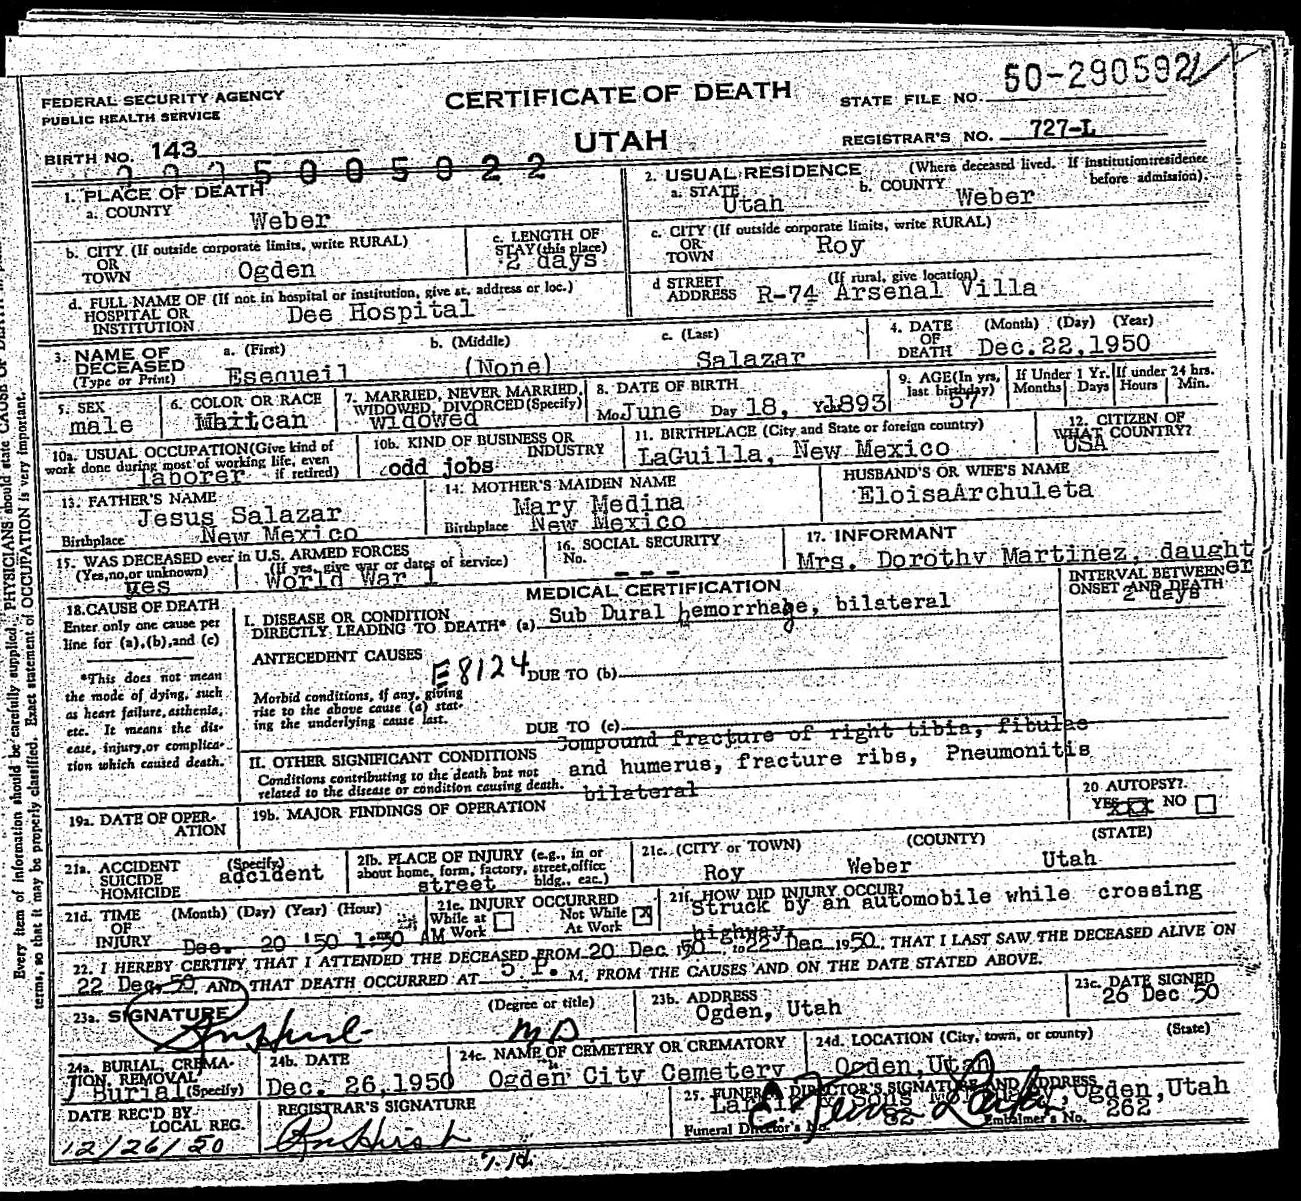 50-290592
FEDERAL SECURITY AGENCY
PUBLIC HEALTH SERVICE
CERTIFICATE OF DEATH
STATE FILE NO.
UTAH
REGISTRAR'S NO. 727-L
BIRTH NO. 143
5 0 0 5 0 2 2
1. PLACE OF DEATH
a. COUNTY
Weber
2. USUAL RESIDENCE (Where deceased lived. If institution: residence before admission).
a. STATE Utah b. COUNTY Weber
b. CITY (If outside corporate limits, write RURAL)
OR
TOWN Ogden
c. LENGTH OF
STAY (this place)
2 days
c. CITY (If outside corporate limits, write RURAL)
OR
TOWN Roy
d. FULL NAME OF (If not in hospital or institution, give st. address or loc.)
HOSPITAL OR
INSTITUTION Dee Hospital
d STREET (If rural, give location)
ADDRESS R-74 Arsenal Villa
3. NAME OF
DECEASED
(Type or Print)
a. (First) b. (Middle) c. (Last)
Esequeil (None) Salazar
4. DATE (Month) (Day) (Year)
OF
DEATH Dec. 22, 1950
5. SEX
male
6. COLOR OR RACE
7. MARRIED, NEVER MARRIED,
WIDOWED, DIVORCED (Specify)
widowed
8. DATE OF BIRTH
Mo June Day 18, Yr 1893
9. AGE (In yrs.
last birthday)
57
If Under 1 Yr. If under 24 hrs.
Months Days Hours Min.
10a. USUAL OCCUPATION (Give kind of
work done during most of working life, even
if retired)
laborer
10b. KIND OF BUSINESS OR
INDUSTRY
odd jobs
11. BIRTHPLACE (City and State or foreign country)
LaGuilla, New Mexico
12. CITIZEN OF
WHAT COUNTRY?
USA
13. FATHER'S NAME
Jesus Salazar
Birthplace New Mexico
14. MOTHER'S MAIDEN NAME
Mary Medina
Birthplace New Mexico
HUSBAND'S OR WIFE'S NAME
Eloisa Archuleta
15. WAS DECEASED ever in U.S. ARMED FORCES
(Yes, no, or unknown) (If yes, give war or dates of service)
yes World War 1
16. SOCIAL SECURITY
No. - - -
17. INFORMANT
Mrs. Dorothy Martinez, daughter
MEDICAL CERTIFICATION
INTERVAL BETWEEN
ONSET AND DEATH
2 days
18. CAUSE OF DEATH
Enter only one cause per
line for (a), (b), and (c)
*This does not mean
the mode of dying, such
as heart failure, asthenia,
etc. It means the dis-
ease, injury, or complica-
tion which caused death.
I. DISEASE OR CONDITION
DIRECTLY LEADING TO DEATH* (a) Sub Dural hemorrhage, bilateral
ANTECEDENT CAUSES
E8124
DUE TO (b)
Morbid conditions, if any, giving
rise to the above cause (a) stat-
ing the underlying cause last.
DUE TO (c)
II. OTHER SIGNIFICANT CONDITIONS
Conditions contributing to the death but not
related to the disease or condition causing death.
Compound fracture of right tibia, fibulae
and humerus, fracture ribs, Pneumonitis
bilateral
19a. DATE OF OPER-
ATION
19b. MAJOR FINDINGS OF OPERATION
20 AUTOPSY?
YES NO
21a. ACCIDENT (Specify)
SUICIDE
HOMICIDE
accident
21b. PLACE OF INJURY (e.g., in or
about home, form, factory, street, office
bldg., eac.)
street
21c. (CITY or TOWN) (COUNTY) (STATE)
Roy Weber Utah
21d. TIME (Month) (Day) (Year) (Hour)
OF
INJURY Dec. 20 '50 AM
21e. INJURY OCCURRED
While at Work Not While At Work X
21f. HOW DID INJURY OCCUR?
Struck by an automobile while crossing
highway.
22. I HEREBY CERTIFY THAT I ATTENDED THE DECEASED FROM 20 Dec, 1950 to 22 Dec 1950, THAT I LAST SAW THE DECEASED ALIVE ON
22 Dec, 50, AND THAT DEATH OCCURRED AT 5 P. M. FROM THE CAUSES AND ON THE DATE STATED ABOVE.
23a. SIGNATURE (Degree or title)
M D
23b. ADDRESS
Ogden, Utah
23c. DATE SIGNED
26 Dec 50
24a. BURIAL, CREMA-
TION, REMOVAL
(Specify)
Burial
24b. DATE
Dec. 26, 1950
24c. NAME OF CEMETERY OR CREMATORY
Ogden City Cemetery
24d. LOCATION (City, town, or county) (State)
Ogden, Utah
DATE REC'D BY
LOCAL REG.
12/26/50
REGISTRAR'S SIGNATURE
25. FUNERAL DIRECTOR'S SIGNATURE AND ADDRESS
Sons Mortuary, Ogden, Utah
Funeral Director's No. 82 Embalmer's No. 262
Every item of information should be carefully supplied. PHYSICIANS should state CAUSE OF DEATH in
terms, so that it may be properly classified. Exact statement of OCCUPATION is very important.